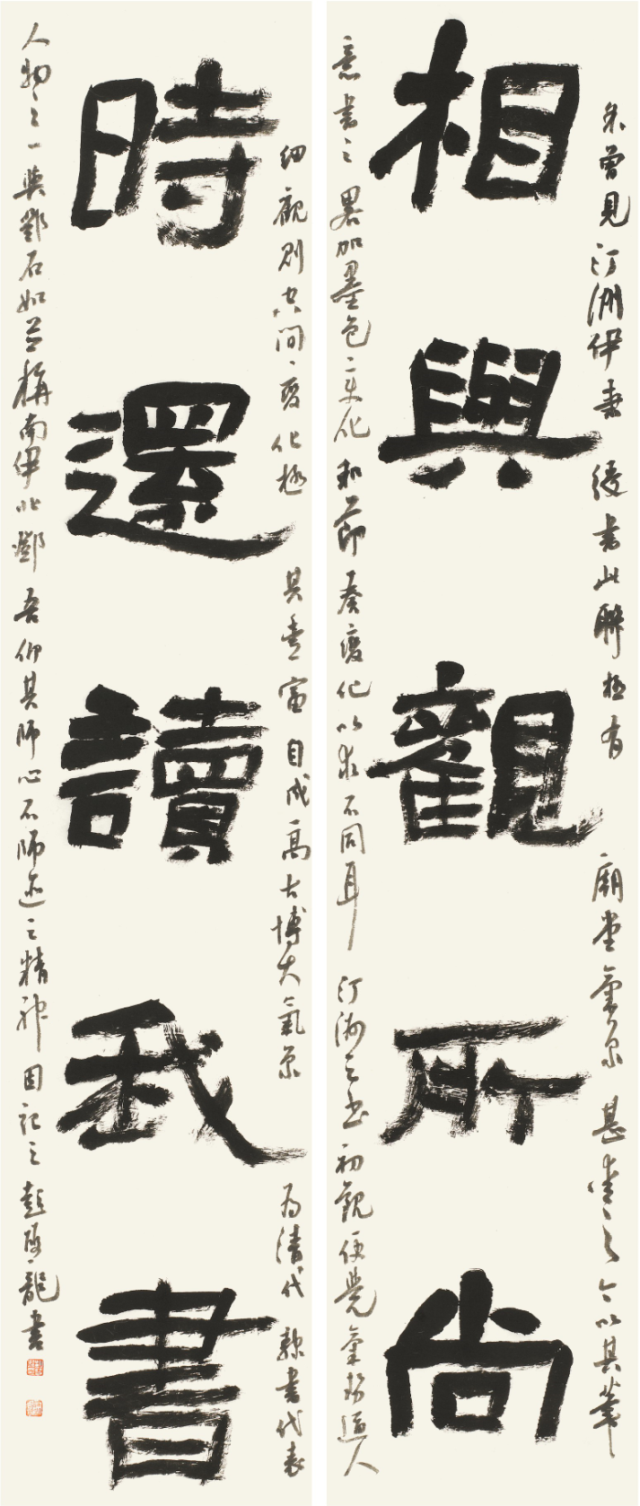 相與觀所尚
余曾見汀洲伊秉綬書此聯極有廟堂氣象甚愛之今以其筆
意書之略加墨色變化和節奏變化以求不同耳汀洲之書初觀便覺氣勢逼人
時還讀我書
細觀則其間變化極其豐富自成高古博大氣象為清代隸書代表
人物之一與鄧石如並稱南伊北鄧吾仰其師心不師迹之精神因記之彭龍書